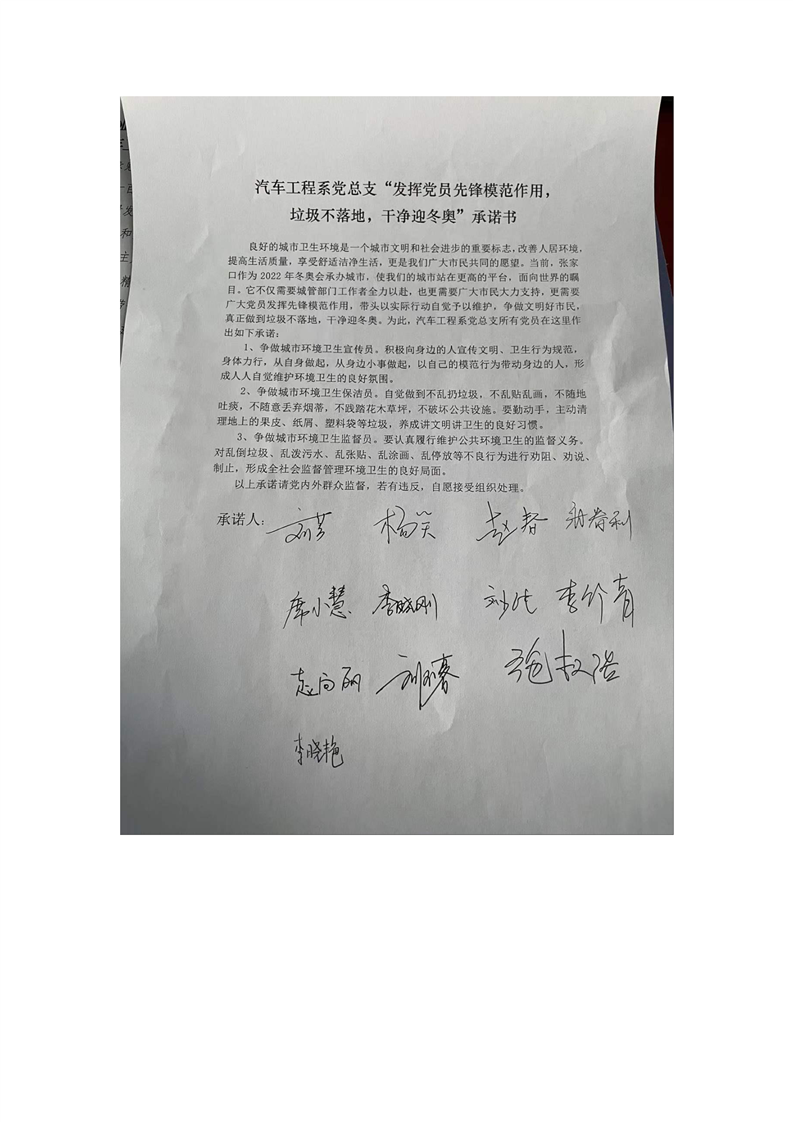 汽车工程系党总支“发挥党员先锋模范作用，
垃圾不落地，干净迎冬奥”承诺书
良好的城市卫生环境是一个城市文明和社会进步的重要标志，改善人居环境，
提高生活质量，享受舒适洁净生活，更是我们广大市民共同的愿望。当前，张家
口作为 2022 年冬奥会承办城市，使我们的城市站在更高的平台，面向世界的瞩
目。它不仅需要城管部门工作者全力以赴，也更需要广大市民大力支持，更需要
广大党员发挥先锋模范作用，带头以实际行动自觉予以维护，争做文明好市民，
真正做到垃圾不落地，干净迎冬奥。为此，汽车工程系党总支所有党员在这里作
出如下承诺：
1、争做城市环境卫生宣传员。积极向身边的人宣传文明、卫生行为规范，
身体力行，从自身做起，从身边小事做起，以自己的模范行为带动身边的人，形
成人人自觉维护环境卫生的良好氛围。
2、争做城市环境卫生保洁员。自觉做到不乱扔垃圾，不乱贴乱画，不随地
吐痰，不随意丢弃烟蒂，不践踏花木草坪，不破坏公共设施。要勤动手，主动清
理地上的果皮、纸屑、塑料袋等垃圾，养成讲文明讲卫生的良好习惯。
3、争做城市环境卫生监督员。要认真履行维护公共环境卫生的监督义务。
对乱倒垃圾、乱泼污水、乱张贴、乱涂画、乱停放等不良行为进行劝阻、劝说、
制止，形成全社会监督管理环境卫生的良好局面。
以上承诺请党内外群众监督，若有违反，自愿接受组织处理。
承诺人： 杨笑 赵春
席小慧 李晓刚
李晓艳